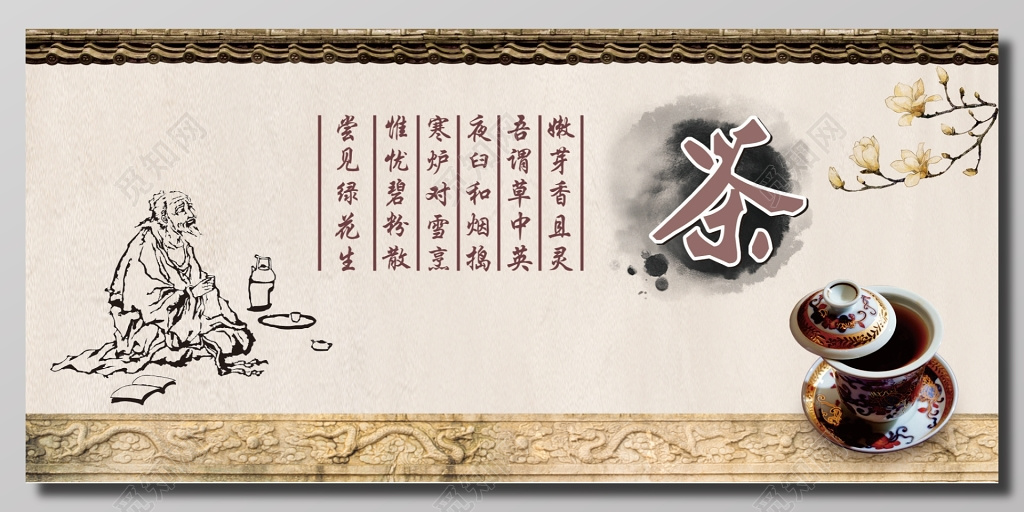 茶
嫩芽香且灵
吾谓草中英
夜臼和烟捣
寒炉对雪烹
惟忧碧粉散
尝见绿花生
觅知网